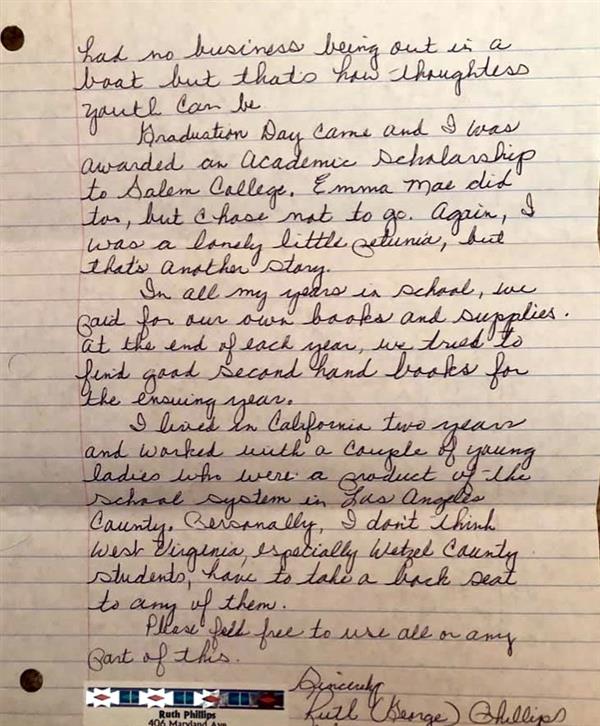 had no business being out in a
boat but that's how thoughtless
youth can be
Graduation Day came and I was
awarded an Academic Scholarship
to Salem College. Emma Mae did
too, but chose not to go. Again, I
was a lonely little petunia, but
that's another story.
In all my years in school, we
paid for our own books and supplies.
At the end of each year, we tried to
find good second hand books for
the ensuing year.
I lived in California two years
and worked with a couple of young
ladies who were a product of the
school system in Los Angeles
County. Personally, I don't think
West Virginia, especially Wetzel County
students, have to take a back seat
to any of them.
Please feel free to use all or any
part of this.
Sincerely
Ruth (George) Phillips
Ruth Phillips
406 Maryland Ave